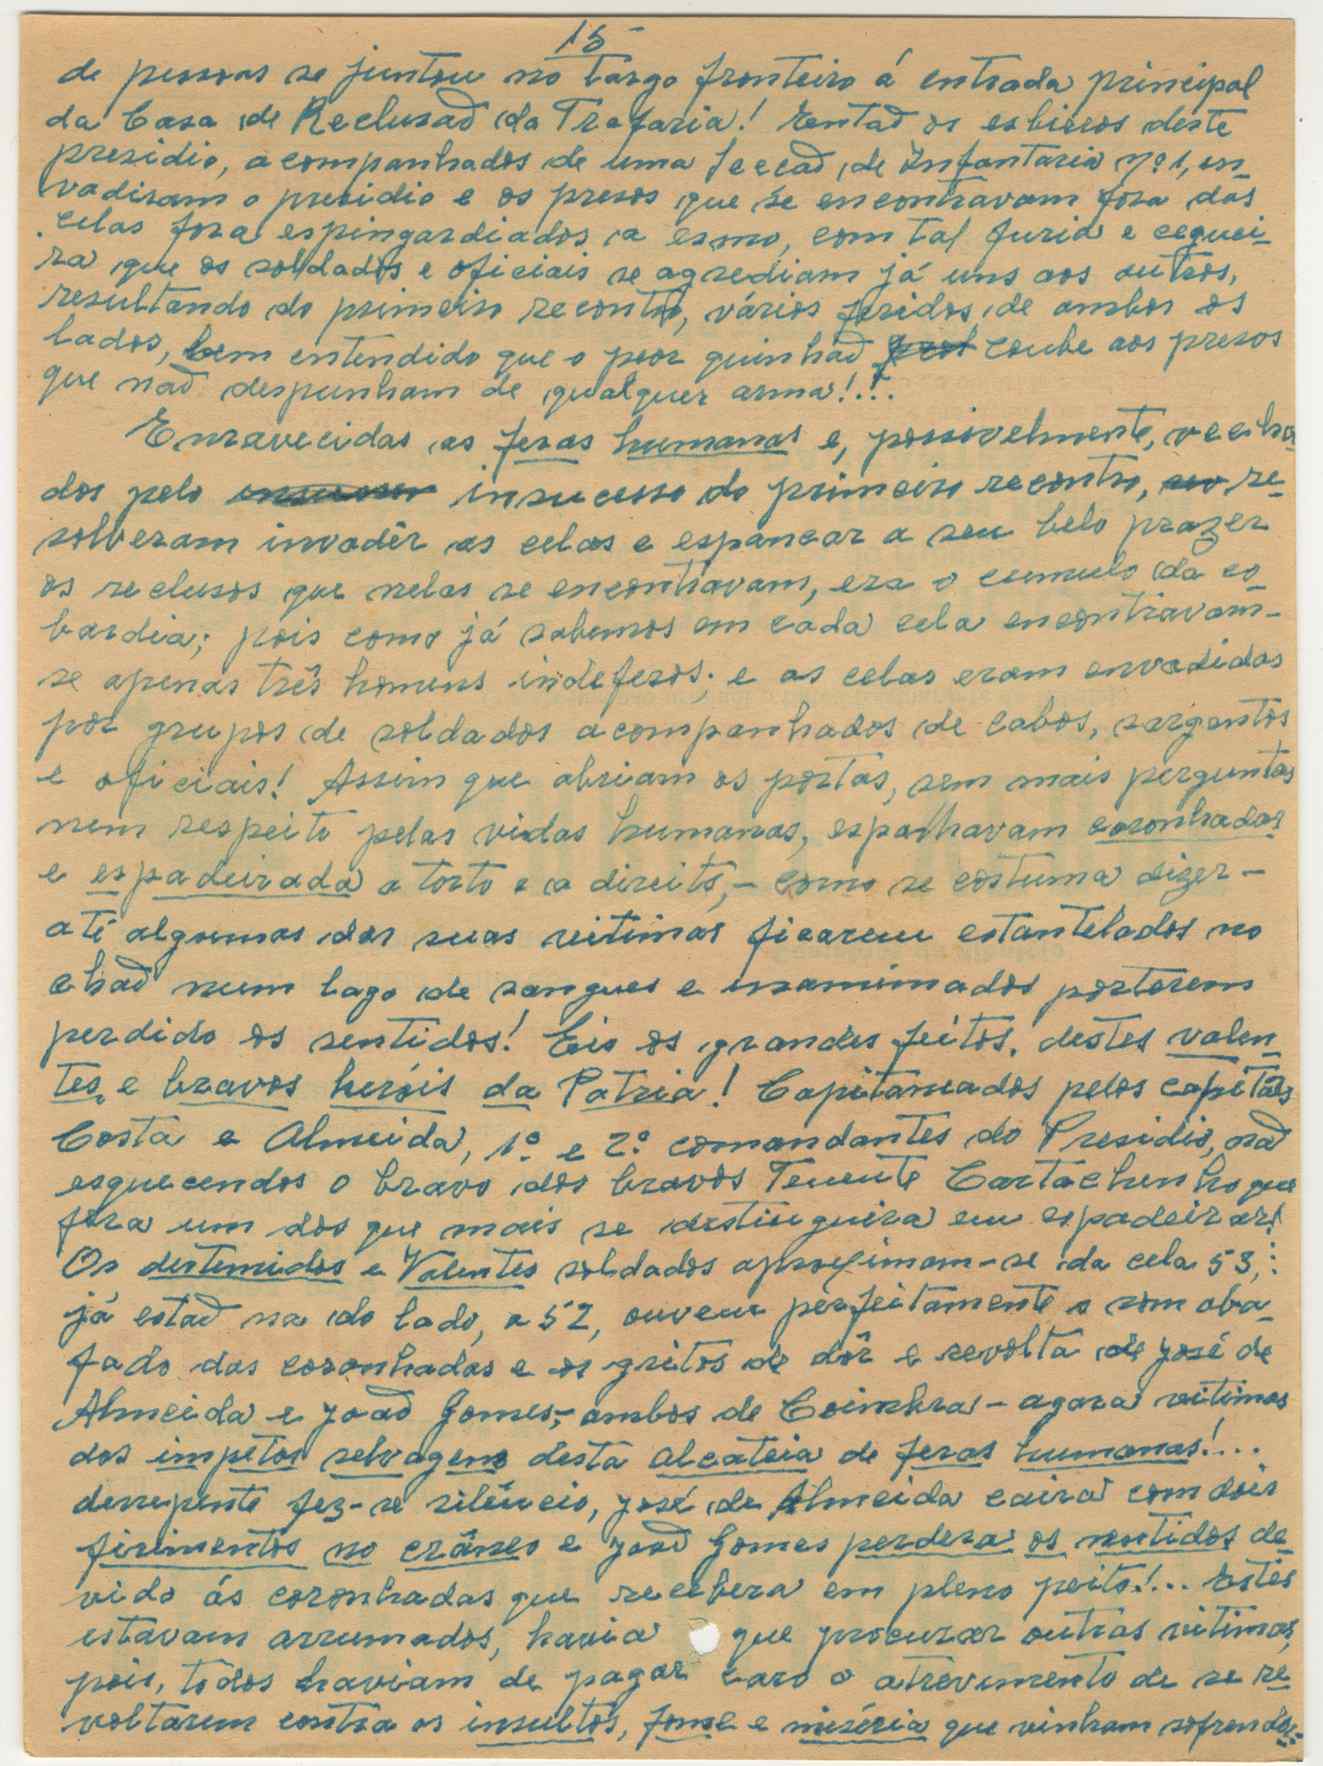 15-
de pessoas se juntou no largo fronteiro á entrada principal
da Casa de Reclusaõ da Trafaria! Entaõ os esbirros deste
presidio, acompanhados de uma secçaõ de Infantaria nº 1, en-
vadiram o presidio e os presos que se encontravam fora das
celas fora espingardiados a esmo, com tal furia e ceguei-
ra que os soldados e oficiais se agrediam já uns aos outros,
resultando do primeiro recontro, vários feridos de ambos os
lados, bem entendido que o peor quinhaõ coube aos presos
que naõ despunham de qualquer arma!...
Enravecidas as feras humanas e, possivelmente, vexa
dos pelo insucesso do primeiro recontro, re-
solveram invadêr as celas e espancar a seu belo prazer
os reclusos que nelas se encontravam, era o cumulo da co
bardia; pois como já sabemos em cada cela encontravam-
se apenas três homens indefesos; e as celas eram envadidas
por grupos de soldados acompanhados de cabos, sargentos
e oficiais! Assim que abriam as portas, sem mais perguntas
nem respeito pelas vidas humanas, espalhavam coronhadas
e espadeirada a torto e a direito, - como se costuma dizer -
até algumas das suas vitimas ficarem estantelados no
chaõ num lago de sangue e inanimados por terem
perdido os sentidos! Eis os grandes feitos, destes valen-
tes, e bravos heróis da Patria! Capitaneados pelos capitães
Costa e Almeida, 1º e 2º comandantes do Presidio, naõ
esquecendos o bravo dos bravos Tenente Cartachinho que
fora um dos que mais se destinguira em espadeirar!
Os destemidos e Valentes soldados aproximam-se da cela 53,
já estaõ na do lado, a 52, ouvem perfeitamente o som aba-
fado das coronhadas e os gritos de dôr e revolta de José de
Almeida e Joaõ Gomes,- ambos de Coimbra - agora vitimas
dos impetos selvagens desta alcateia de feras humanas!...
derrepente fez-se silêncio, José de Almeida caira com dois
firimentos no crâneo e Joaõ Gomes perdera os sentidos de-
vido ás coronhadas que recebera em pleno peito!... Estes
estavam arrumados, havia que procurar outras vitimas,
pois, todos haviam de pagar caro o atrevimento de se re
voltarem contra os insultos, fome e miséria que vinham sofrendo..